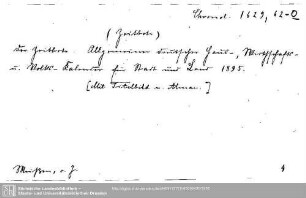 Chronol. 1629, 62-0
(Zeitbote)
Der Zeitbote. Allgemeiner deutscher Haus-, Wirthschafts-
u. Volks-Kalender für Stadt und Land 1895.
[Mit Titelbild u.
Meißen, o. J. 4
Sächsische Landesbibliothek -
Staats- und Universitätsbibliothek Dresden